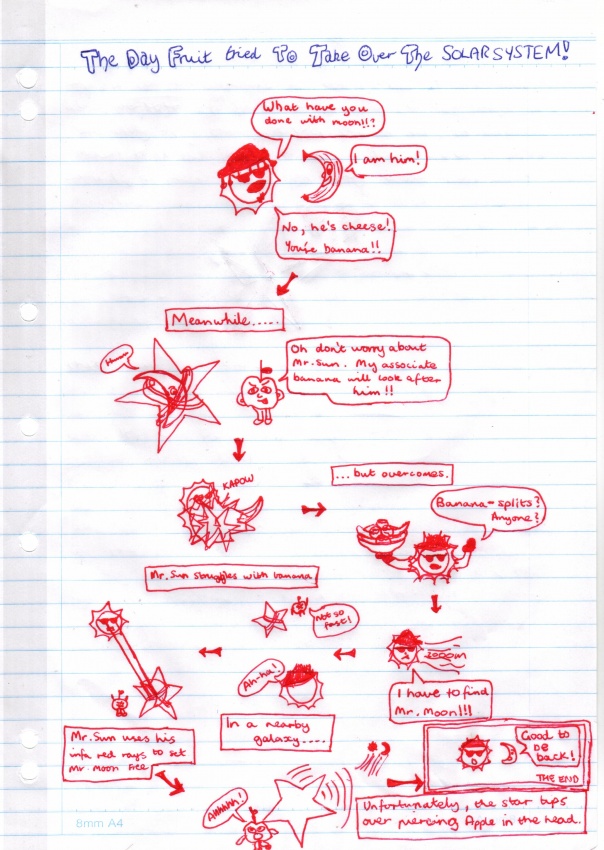 The Day Fruit tried To Take Over The SOLAR SYSTEM!
What have you
done with moon!!?
I am him!
No, he's cheese!
You're banana!!
Meanwhile.....
Hmmm
Oh don't worry about
Mr. Sun. My associate
banana will look after
him!!
KAPOW
Mr. Sun struggles with banana
...but overcomes.
Banana-splits?
Anyone?
zooom
I have to find
Mr. Moon!!!
Ah-ha!
In a nearby
galaxy....
Not so
fast!
Mr. Sun uses his
infa red rays to set
Mr. Moon free
Ahhhhh!
Unfortunately, the star tips
over piercing Apple in the head.
Good to
be
back!
THE END
8mm A4